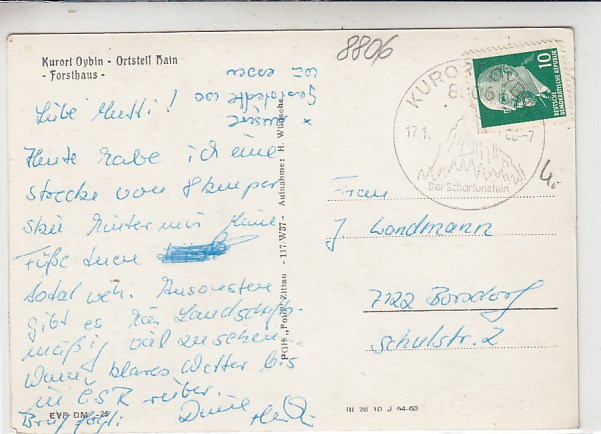 Kurort Oybin - Ortsteil Hain
- Forsthaus -
8806
Liebe Mutti!
x unsere
Gaststätte wo
wir essen
Heute habe ich eine
Strecke von 8 km per
Ski hinter mir. Meine
Füße tun
total weh. Ansonsten
gibt es hier landschafts-
mäßig viel zu sehen.
Wenn klares Wetter bis
in ČSR rüber.
Brief folgt! Deine
EVP DM -,25
PGH „Foto“ Zittau - 117 W37 - Aufnahme: H. Wünsche
KURORT OYBIN
8806
17.1. -7
Der Scharfenstein
10
DEUTSCHE
DEMOKRATISCHE REPUBLIK
Frau
J. Landmann
7122 Borsdorf
Schulstr. 2
III 28 10 J 64-63